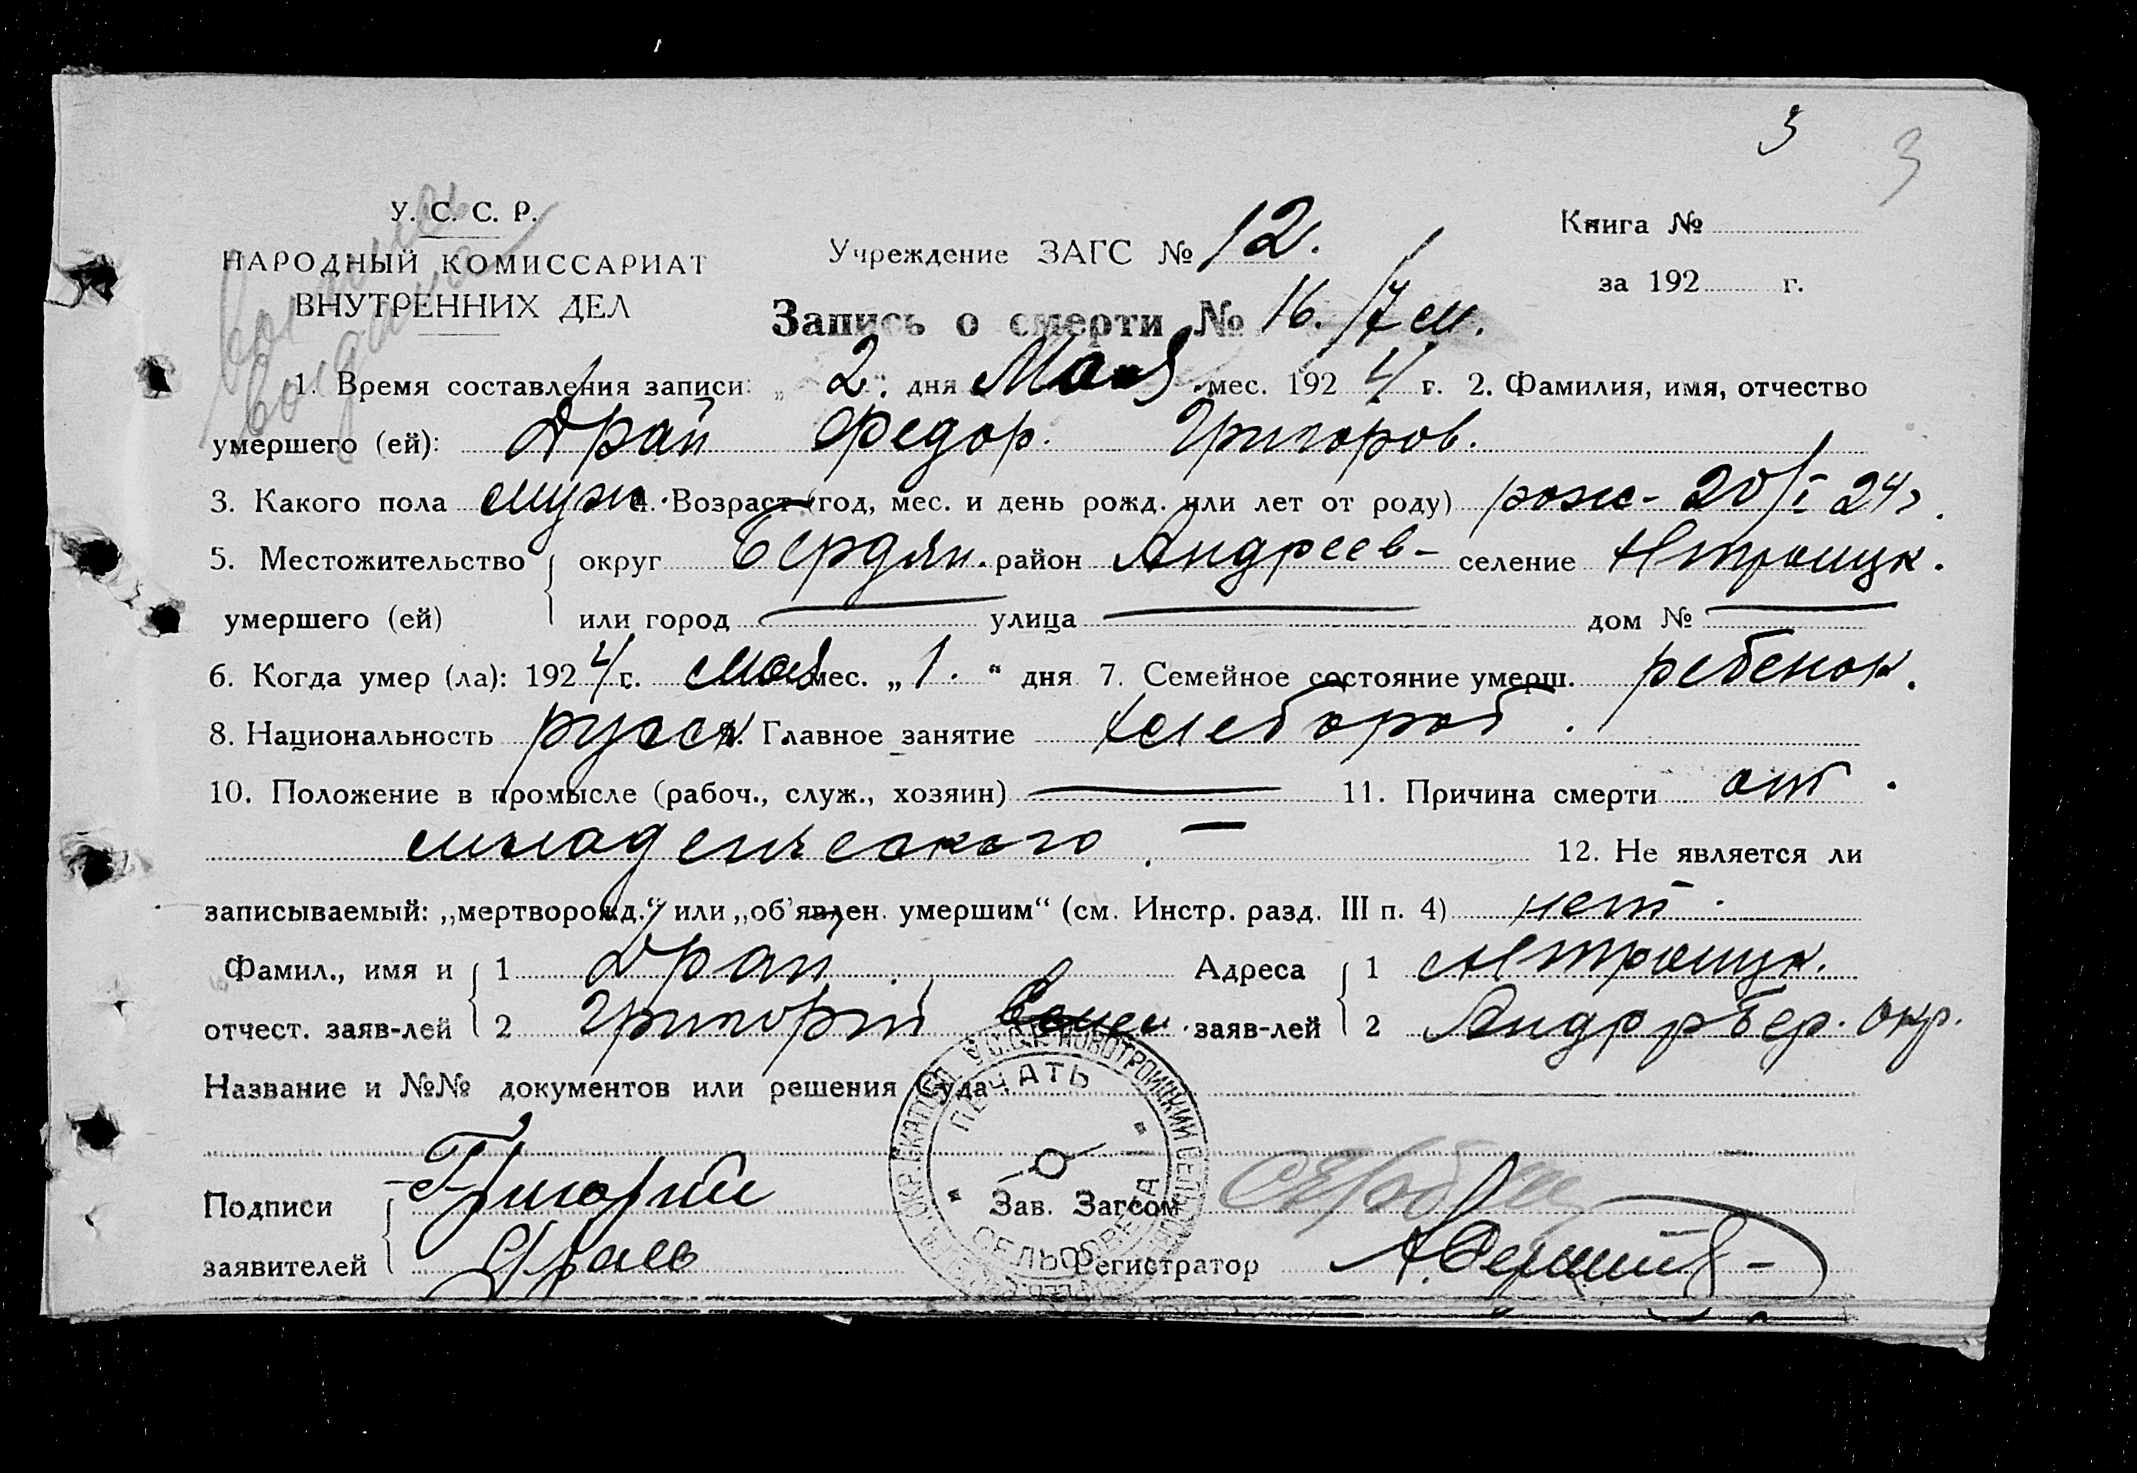 3 3
У. С. С. Р.
НАРОДНЫЙ КОМИССАРИАТ
ВНУТРЕННИХ ДЕЛ
Учреждение ЗАГС № 12.
Книга №
за 192 г.
Запись о смерти № 16. /7 м.
1. Время составления записи: „2“. дня Мая мес. 1924 г. 2. Фамилия, имя, отчество
умершего (ей): Драй Федор. Григоров.
3. Какого пола муж. 4. Возраст (год, мес. и день рожд. или лет от роду) рож- 20/I 24 г.
5. Местожительство округ Бердян. район Андреев- селение Нтроицк.
умершего (ей) или город — улица — дом № —
6. Когда умер (ла): 1924 г. мая мес. „1.“ дня 7. Семейное состояние умерш. ребенок.
8. Национальность русск. Главное занятие хлебороб.
10. Положение в промысле (рабоч., служ., хозяин) — 11. Причина смерти от
младенческого. — 12. Не является ли
записываемый: „мертворожд.“ или „об'явлен. умершим“ (см. Инстр. разд. III п. 4) нет.
Фамил., имя и 1 Драй. Адреса 1 Нтроицк.
отчест. заяв-лей 2 Григорий заяв-лей 2 Андр р Бер. окр.
Название и №№ документов или решения Суда
ПЕЧАТЬ
СЕЛЬСОВЕТА
У.С.С.Р. НОВОТРОИЦКИЙ
Подписи Григорий Зав. Загсом
заявителей Драев Регистратор